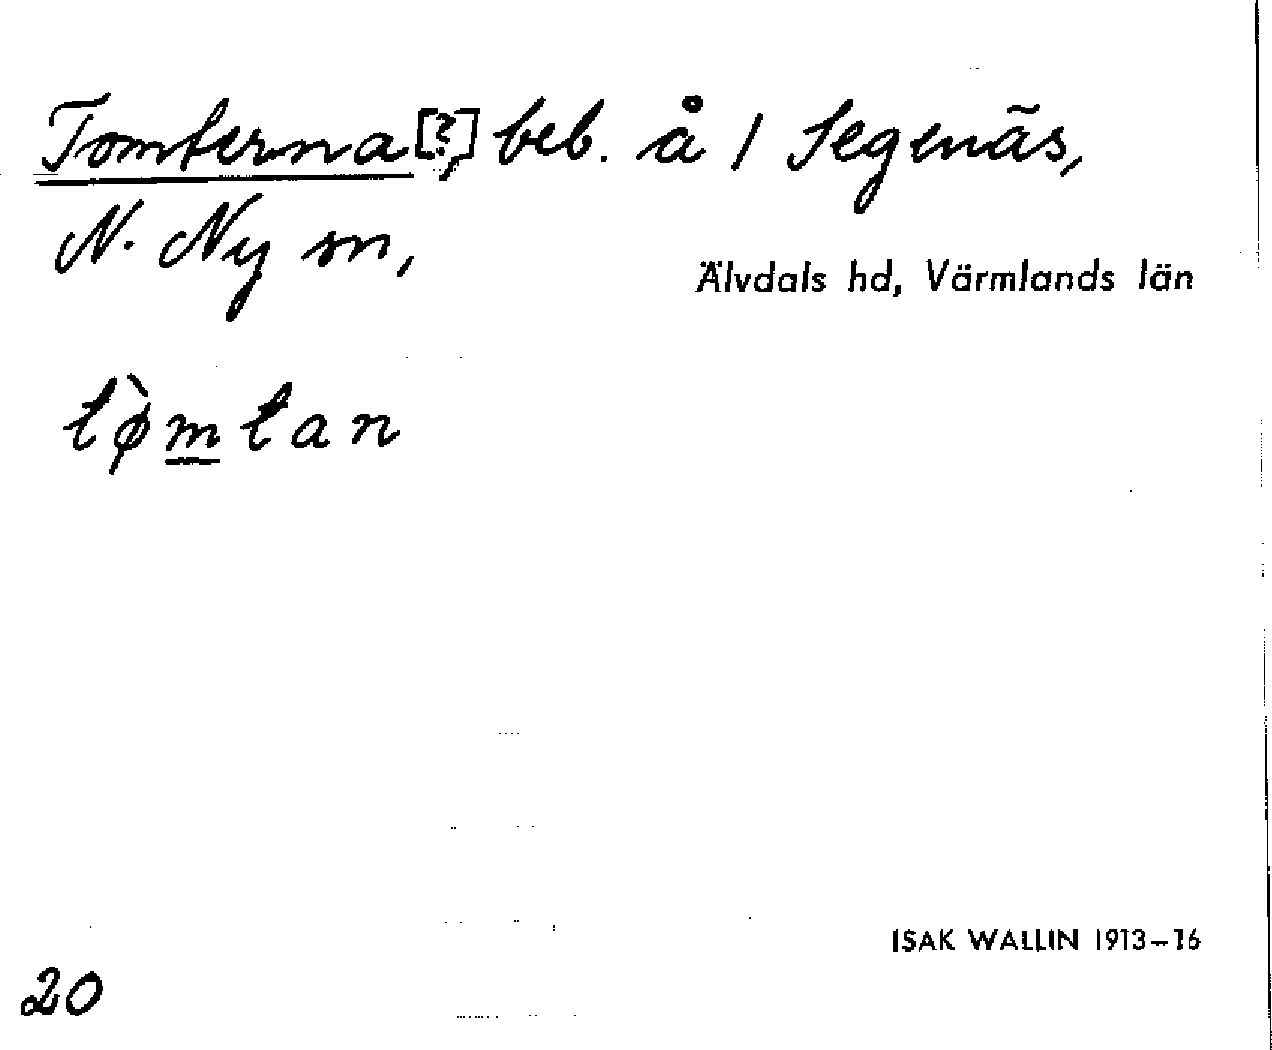 Tomterna[?], beb. å 1 Segenäs,
N. Ny sn,
Älvdals hd, Värmlands län
tø̀mtan
ISAK WALLIN 1913–16
20